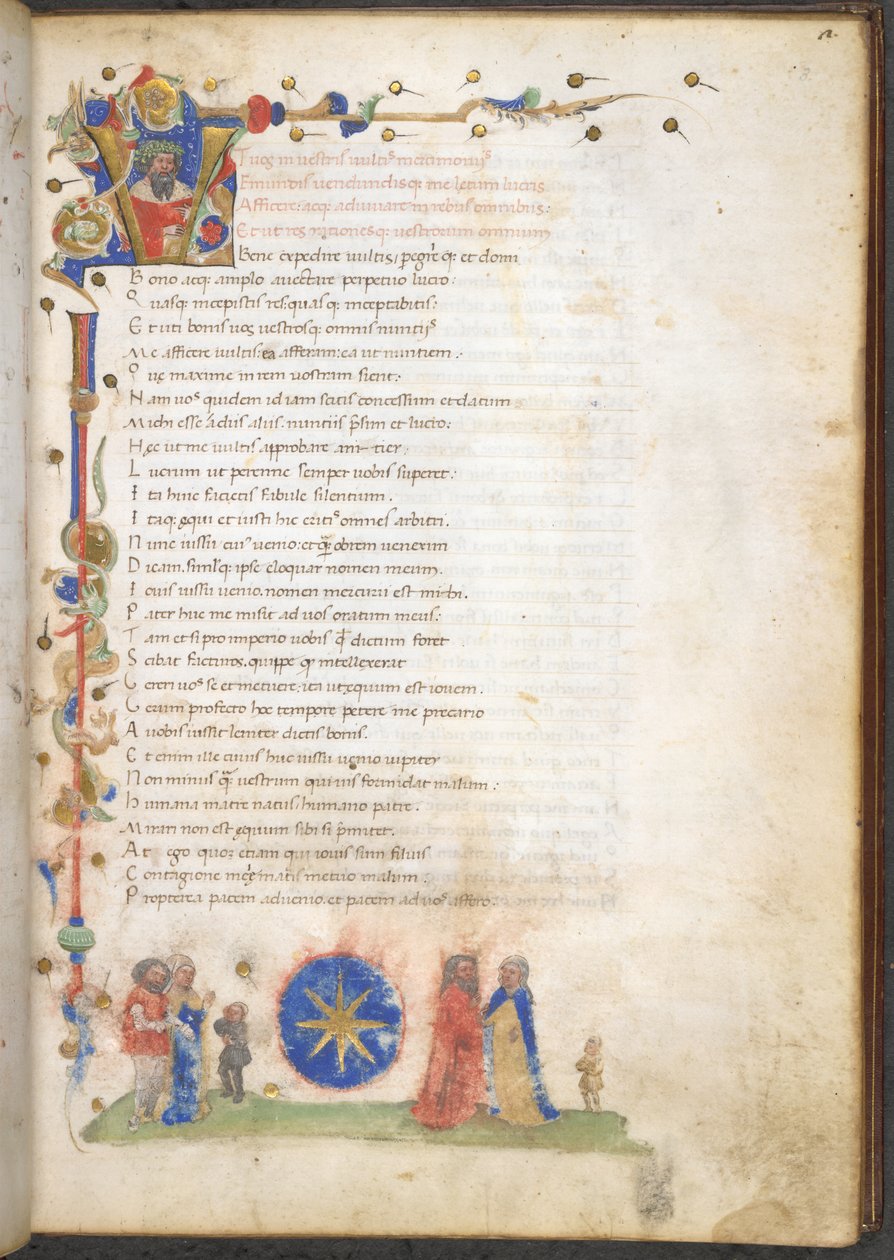 Vos in vestris vultis mercimonijs
Emundis uendundisq; me letum lucris
Afficere: atq; adiuuare in rebus omnibus:
Et ut res rationesq; uestrorum omnium
Bene expedire uultis, pegre q; et domi
Bono atq; amplo auctare perpetuo lucro:
Quasq; incepistis res: quas q; inceptabitis:
Et uti bonis uos uestrosq; omnis nuntijs
Me afficere uultis: ea afferam: ea ut nuntiem:
Que maxime in rem vostram sient:
Nam uos quidem id iam scitis concessum et datum
Michi esse a dijs alijs. nuntiis psim et lucro:
Hęc ut me uultis approbare tier:
Lucrum ut perenne semper uobis superet:
Ita huic facietis fabule silentium.
Itaq; ęqui et iusti hic eritis omnes arbitri.
Nunc iussu cuius uenio: et quam obrem venerim
Dicam. simulq; ipse eloquar nomen meum.
Iouis iussu uenio. nomen mercurii est mihi.
Pater huc me misit ad uos oratum meus:
Tam et si pro imperio uobis qd dictum foret
Scibat facturos. quippe qui intellexerat
Uereri uos se et metuere: ita ut ęquum est iouem.
Uerum profecto hoc tempore petere me precario
A uobis iussit leniter dictis bonis.
Et enim ille cuius huc iussu uenio iupiter
Non minus quam uestrum quiuis formidat malum:
Humana matre natus, humano patre.
Mirari non est ęquum sibi si pretimet.
At ego quoq; etiam qui iouis sum filius
Contagione mei patris metuo malum.
Propterea pacem aduenio. et pacem ad uos affero.